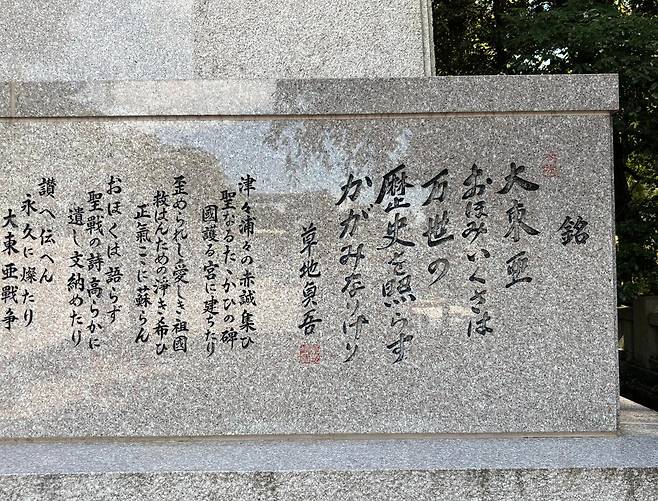 銘
大東亜
おほみいくさは
万世の
歴史を照らす
かがみなりけり
草地貞吾
津々浦々の赤誠集ひ
聖なるたゝかひの碑
國護る宮に建ちたり
歪められし愛しき祖國
救はんための浄き希ひ
正氣こゝに蘇らん
おほくは語らず
聖戦の詩高らかに
遺し文納めたり
讃へ伝へん
永久に燦たり
大東亜戦争